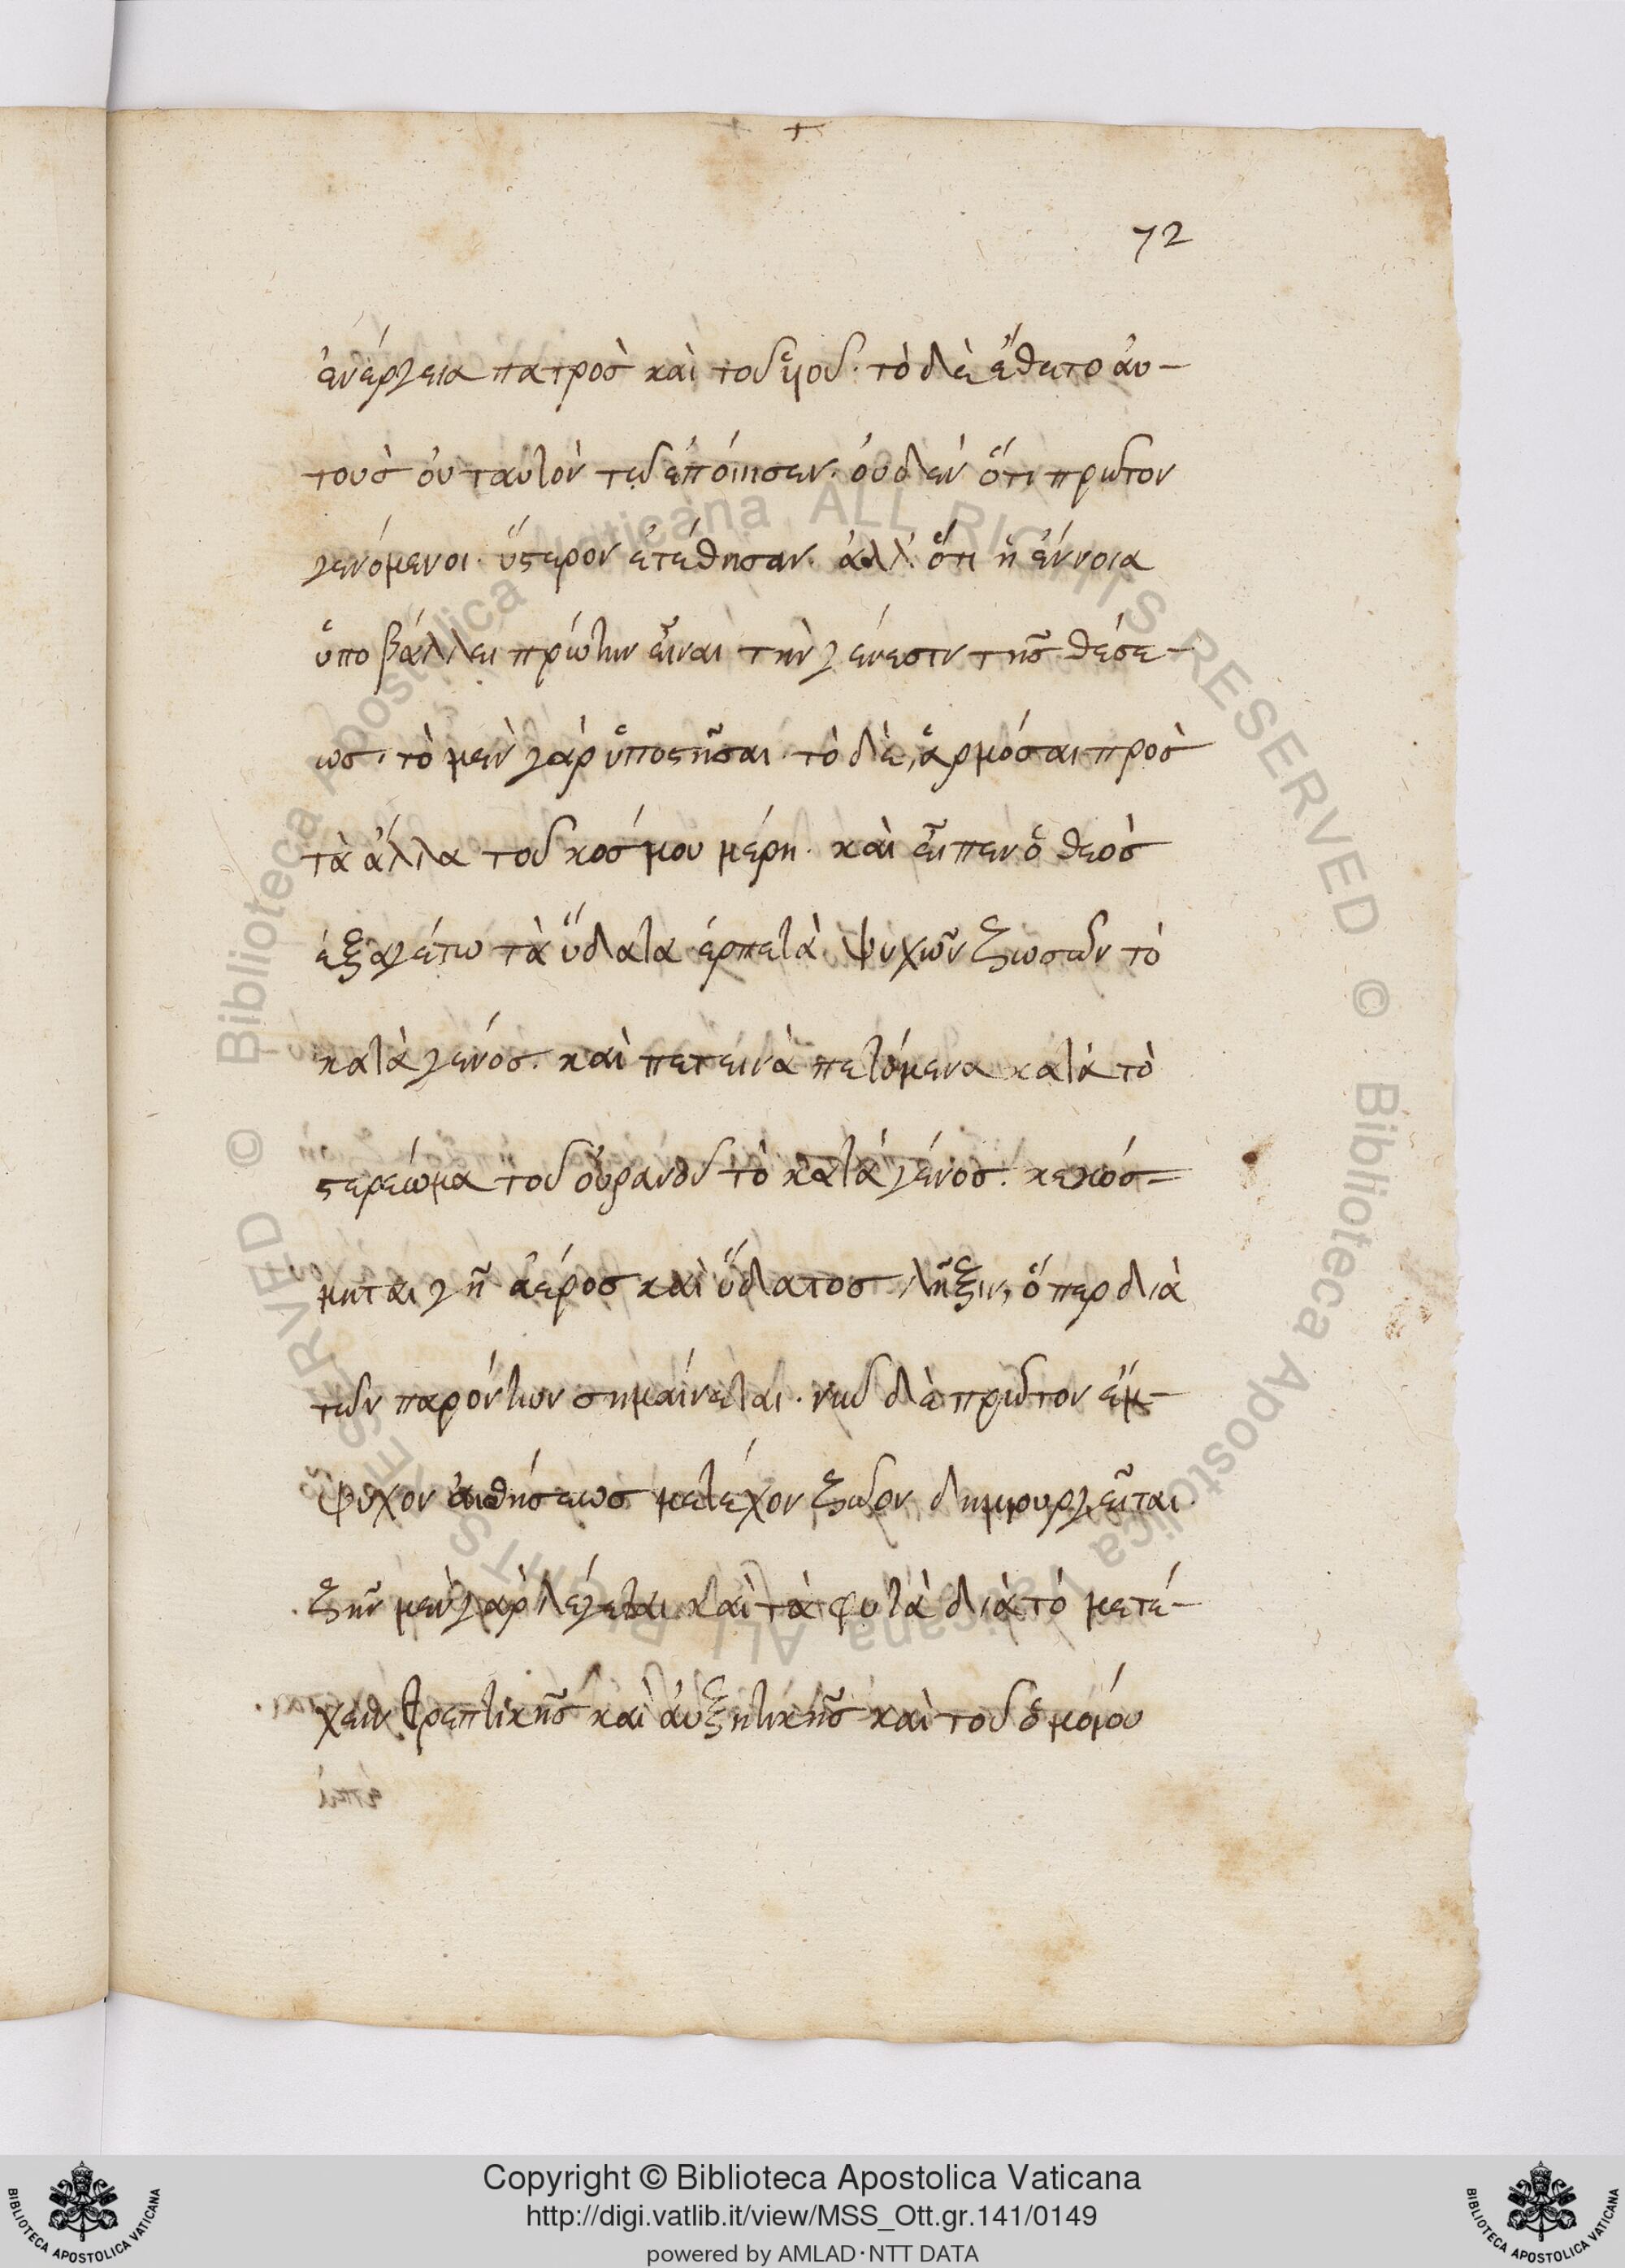 72
ἐνέργεια πατρὸσ καὶ τοῦ ἡοῦ· τὸ δὲ ἔθετο ἀυ-
τοὺσ ὀυ ταυτὸν τῶ ἐπόιησεν· ὀυδ' ἐν ὅτι πρῶτον
γενόμενοι· ὕστερον ἐτέθησαν· ἀλλ' ὅτι ἡ ἔννοια
ὑποβάλλει πρώτην εἶναι τὴν γένεσιν τῆσ θέσε-
ωσ· τὸ μὲν γὰρ ὑποστῆσαι· τὸ δὲ, ἁρμόσαι πρὸσ
τὰ ἄλλα τοῦ κόσμου μέρη· καὶ εἶπεν ὁ θεὸσ
ἐξαγέτω τὰ ὕδατα ἑρπετὰ ψυχῶν ζωσῶν τὸ
κατὰ γένοσ. καὶ πετεινὰ πετόμενα κατὰ τὸ
στερέωμα τοῦ ὀυρανοῦ τὸ κατὰ γένοσ. κεκόσ=
μηται γῆ ἀέροσ καὶ ὕδατοσ λῆξιν, ὅπερ διὰ
τῶν παρόντων σημαίνεται· νῦ δὲ πρῶτον ἔμ-
ψυχον ἀισθήσεωσ μετέχον ζῶον δημιουργεῖται·
ζῆν μὲν γὰρ λέγεται καὶ τὰ φυτὰ διὰ τὸ μετέ-
χειν θρεπτικῆσ καὶ ἀυξητικῆσ καὶ τοῦ ὁμοίου
Copyright © Biblioteca Apostolica Vaticana
http://digi.vatlib.it/view/MSS_Ott.gr.141/0149
powered by AMLAD·NTT DATA
BIBLIOTECA APOSTOLICA VATICANA
BIBLIOTECA APOSTOLICA VATICANA
© Biblioteca Apostolica Vaticana ALL RIGHTS RESERVED © Biblioteca Apostolica Vaticana ALL RIGHTS RESERVED